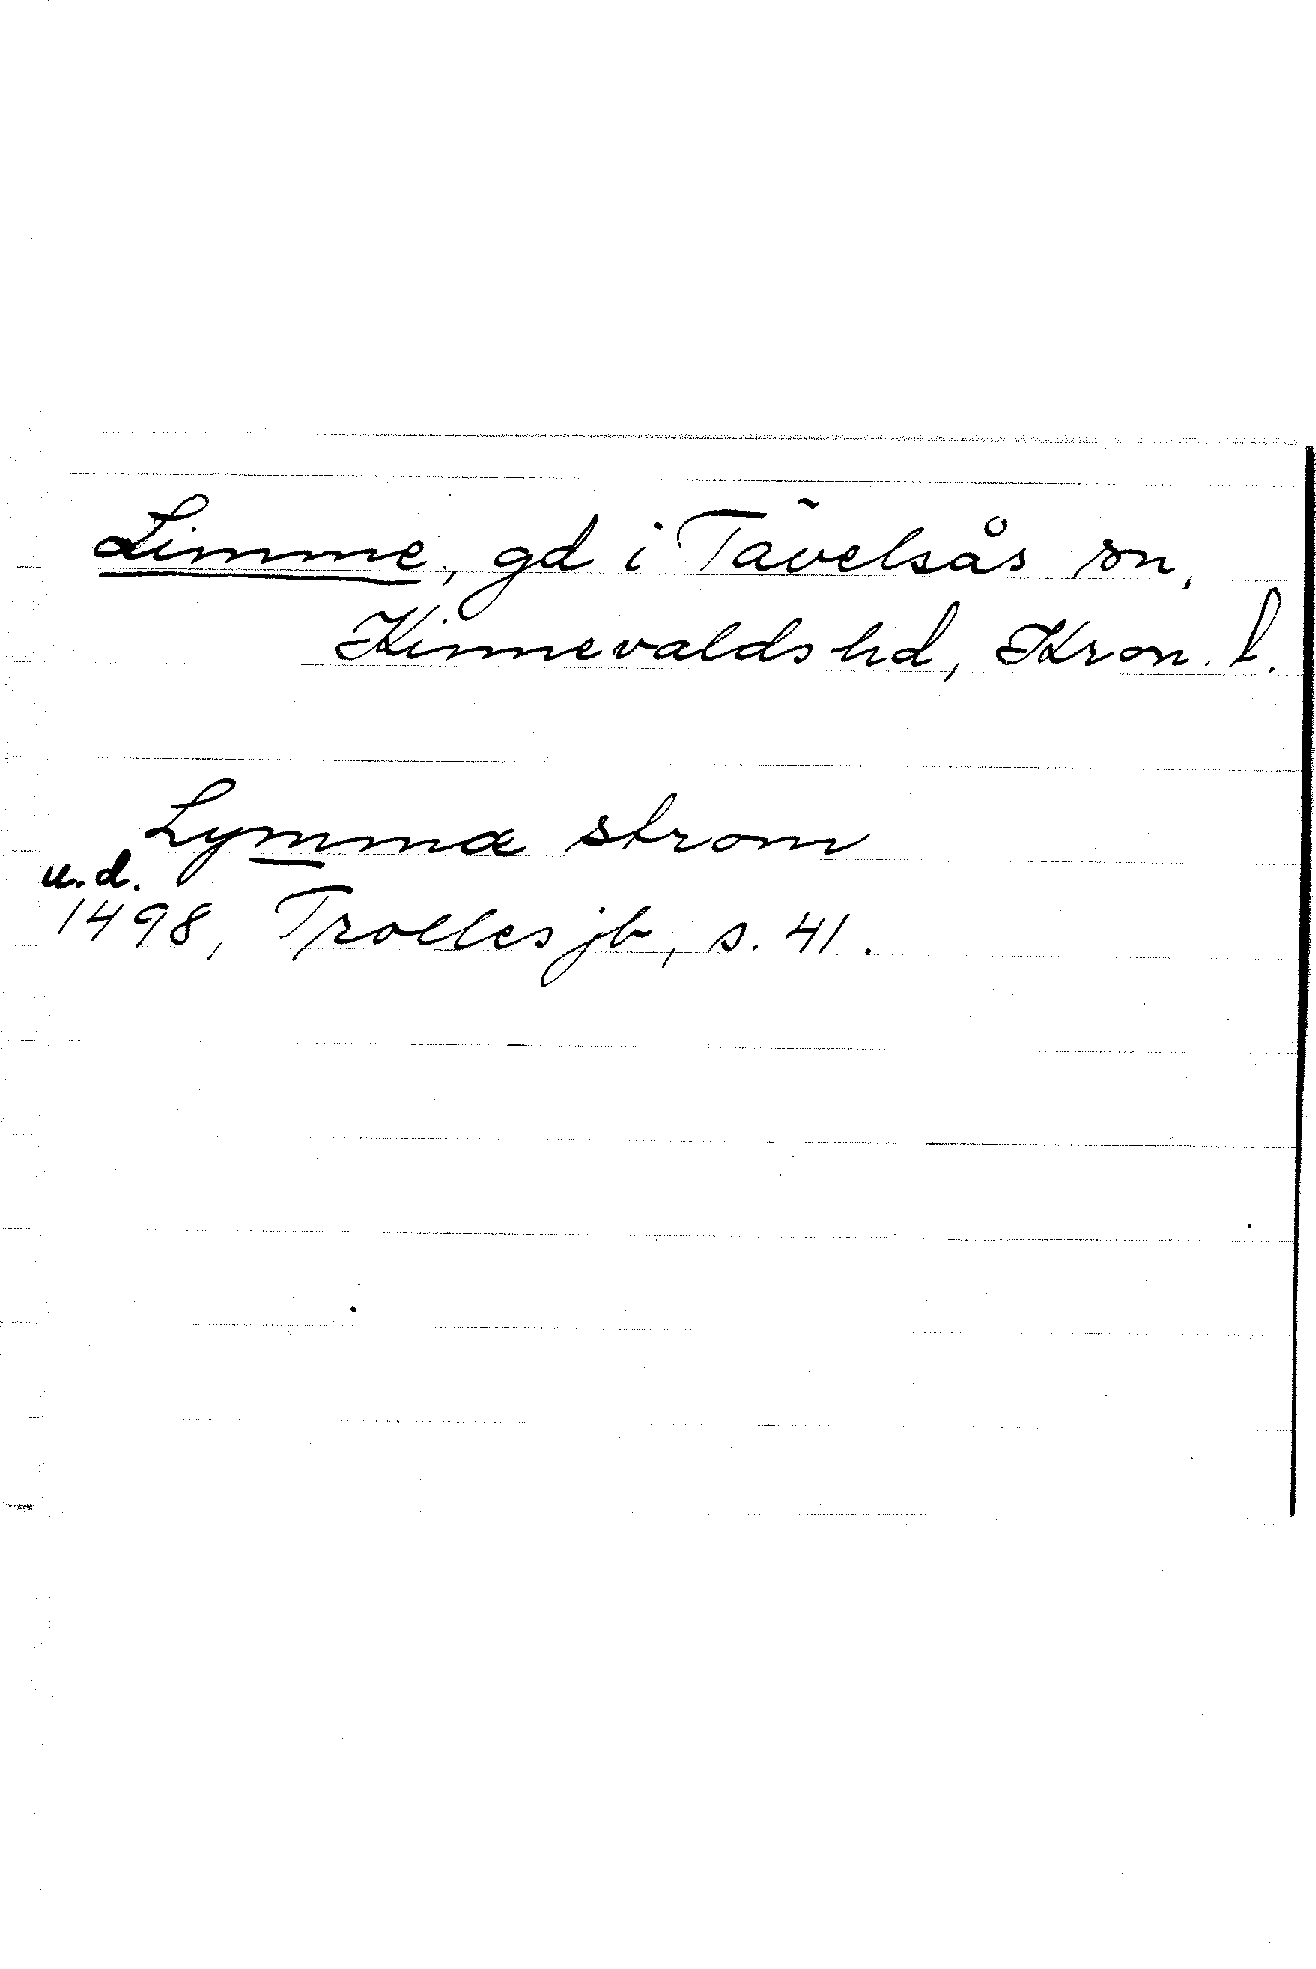 Limme, gd i Tävelsås sn,
Kinnevalds hd, Kron. l.
Lymmæ strom
u.d.
1498, Trolles jb, s. 41.